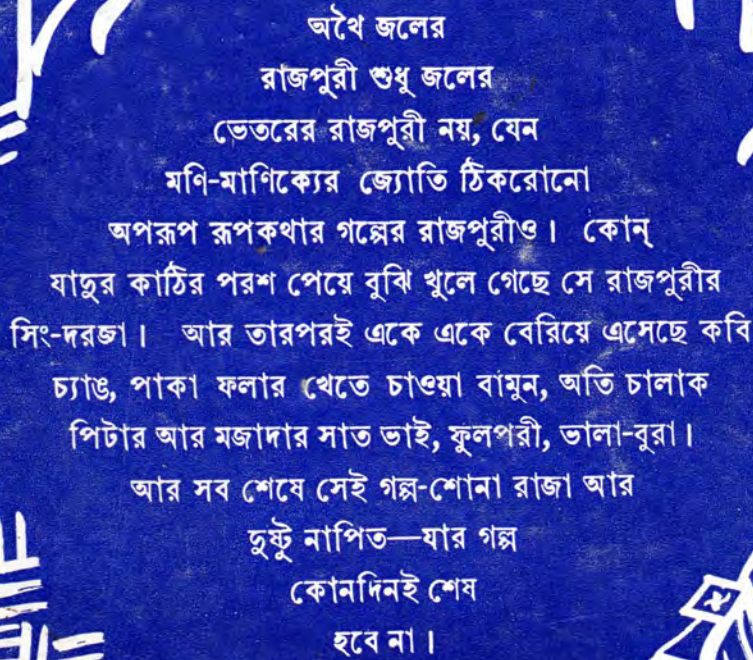 অথৈ জলের
রাজপুরী শুধু জলের
ভেতরের রাজপুরী নয়, যেন
মণি-মাণিক্যের জ্যোতি ঠিকরোনো
অপরূপ রূপকথার গল্পের রাজপুরীও। কোন্
যাদুর কাঠির পরশ পেয়ে বুঝি খুলে গেছে সে রাজপুরীর
সিং-দরজা। আর তারপরই একে একে বেরিয়ে এসেছে কবি
চ্যাঙ, পাকা ফলার খেতে চাওয়া বামুন, অতি চালাক
পিটার আর মজাদার সাত ভাই, ফুলপরী, ভালা-বুরা।
আর সব শেষে সেই গল্প-শোনা রাজা আর
দুষ্টু নাপিত—যার গল্প
কোনদিনই শেষ
হবে না।